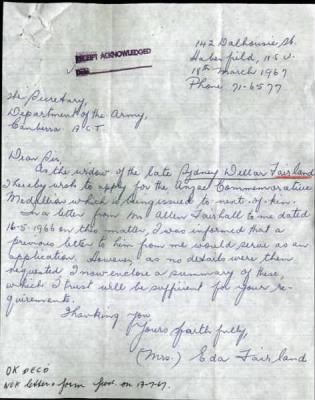 142 Dalhousie St.
Haberfield, N.S.W.
18th March 1967
Phone 71-6577
RECEIPT ACKNOWLEDGED
The Secretary,
Department of the Army,
Canberra A.C.T.
Dear Sir,
As the widow of the late Sydney Fairland
I hereby wish to apply for the Anzac Commemorative
Medallion which is being issued to next-of-kin.
In a letter from Mr Allen Fairhall to me dated
16-5-1966 on this matter, I was informed that a
previous letter to him from me would serve as an
application. However as no details were then
requested I now enclose a summary of these,
which I trust will be sufficient for your re-
quirements.
Thanking you
Yours faithfully,
(Mrs.) Eda Fairland
OK
NOK letter & form on 13.7.67.